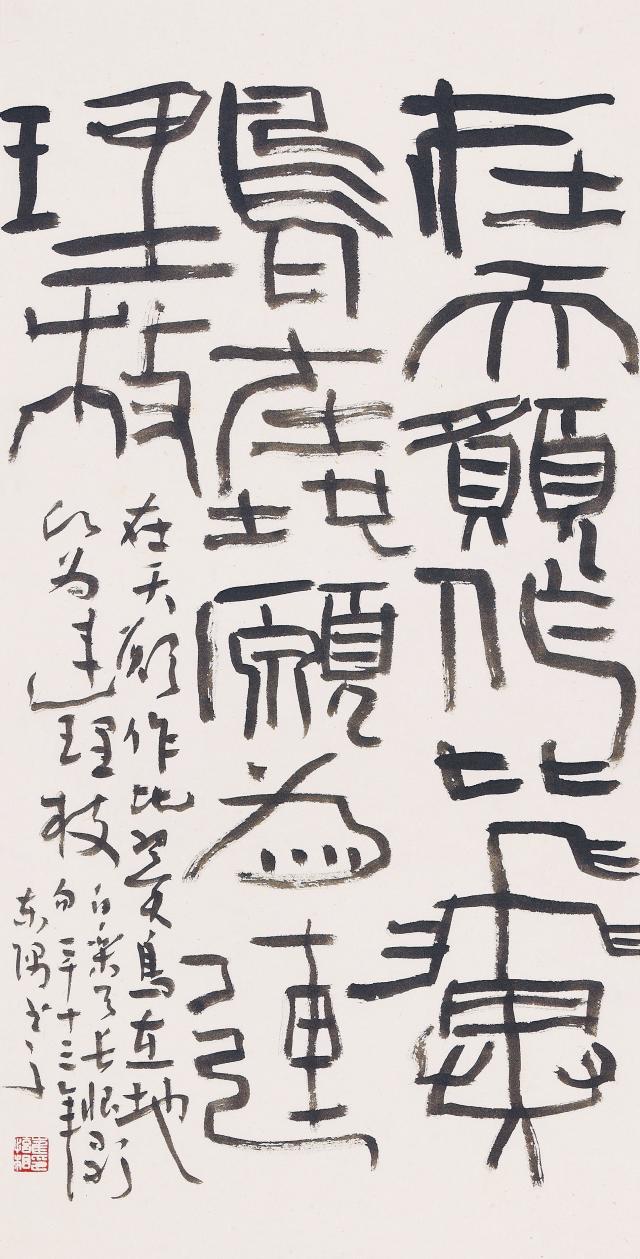 在天願作比翼
鳥在地願為連
理枝
在天願作比翼鳥在地
为連理枝
白樂天長恨歌
句二千十三年
东隅书